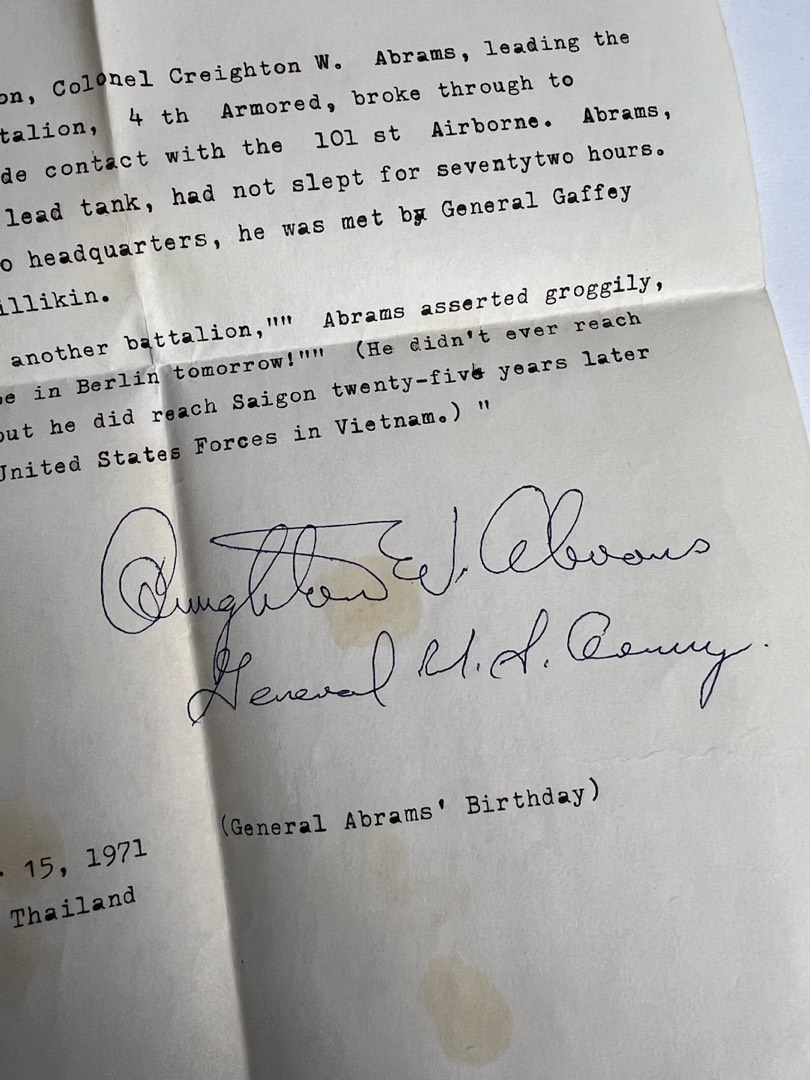 on, Colonel Creighton W. Abrams, leading the
talion, 4 th Armored, broke through to
de contact with the 101 st Airborne. Abrams,
lead tank, had not slept for seventytwo hours.
o headquarters, he was met by General Gaffey
illikin.
another battalion,"" Abrams asserted groggily,
be in Berlin tomorrow!"" (He didn't ever reach
but he did reach Saigon twenty-five years later
United States Forces in Vietnam.) "
Creighton W. Abrams
General U.S. Army.
(General Abrams' Birthday)
. 15, 1971
Thailand